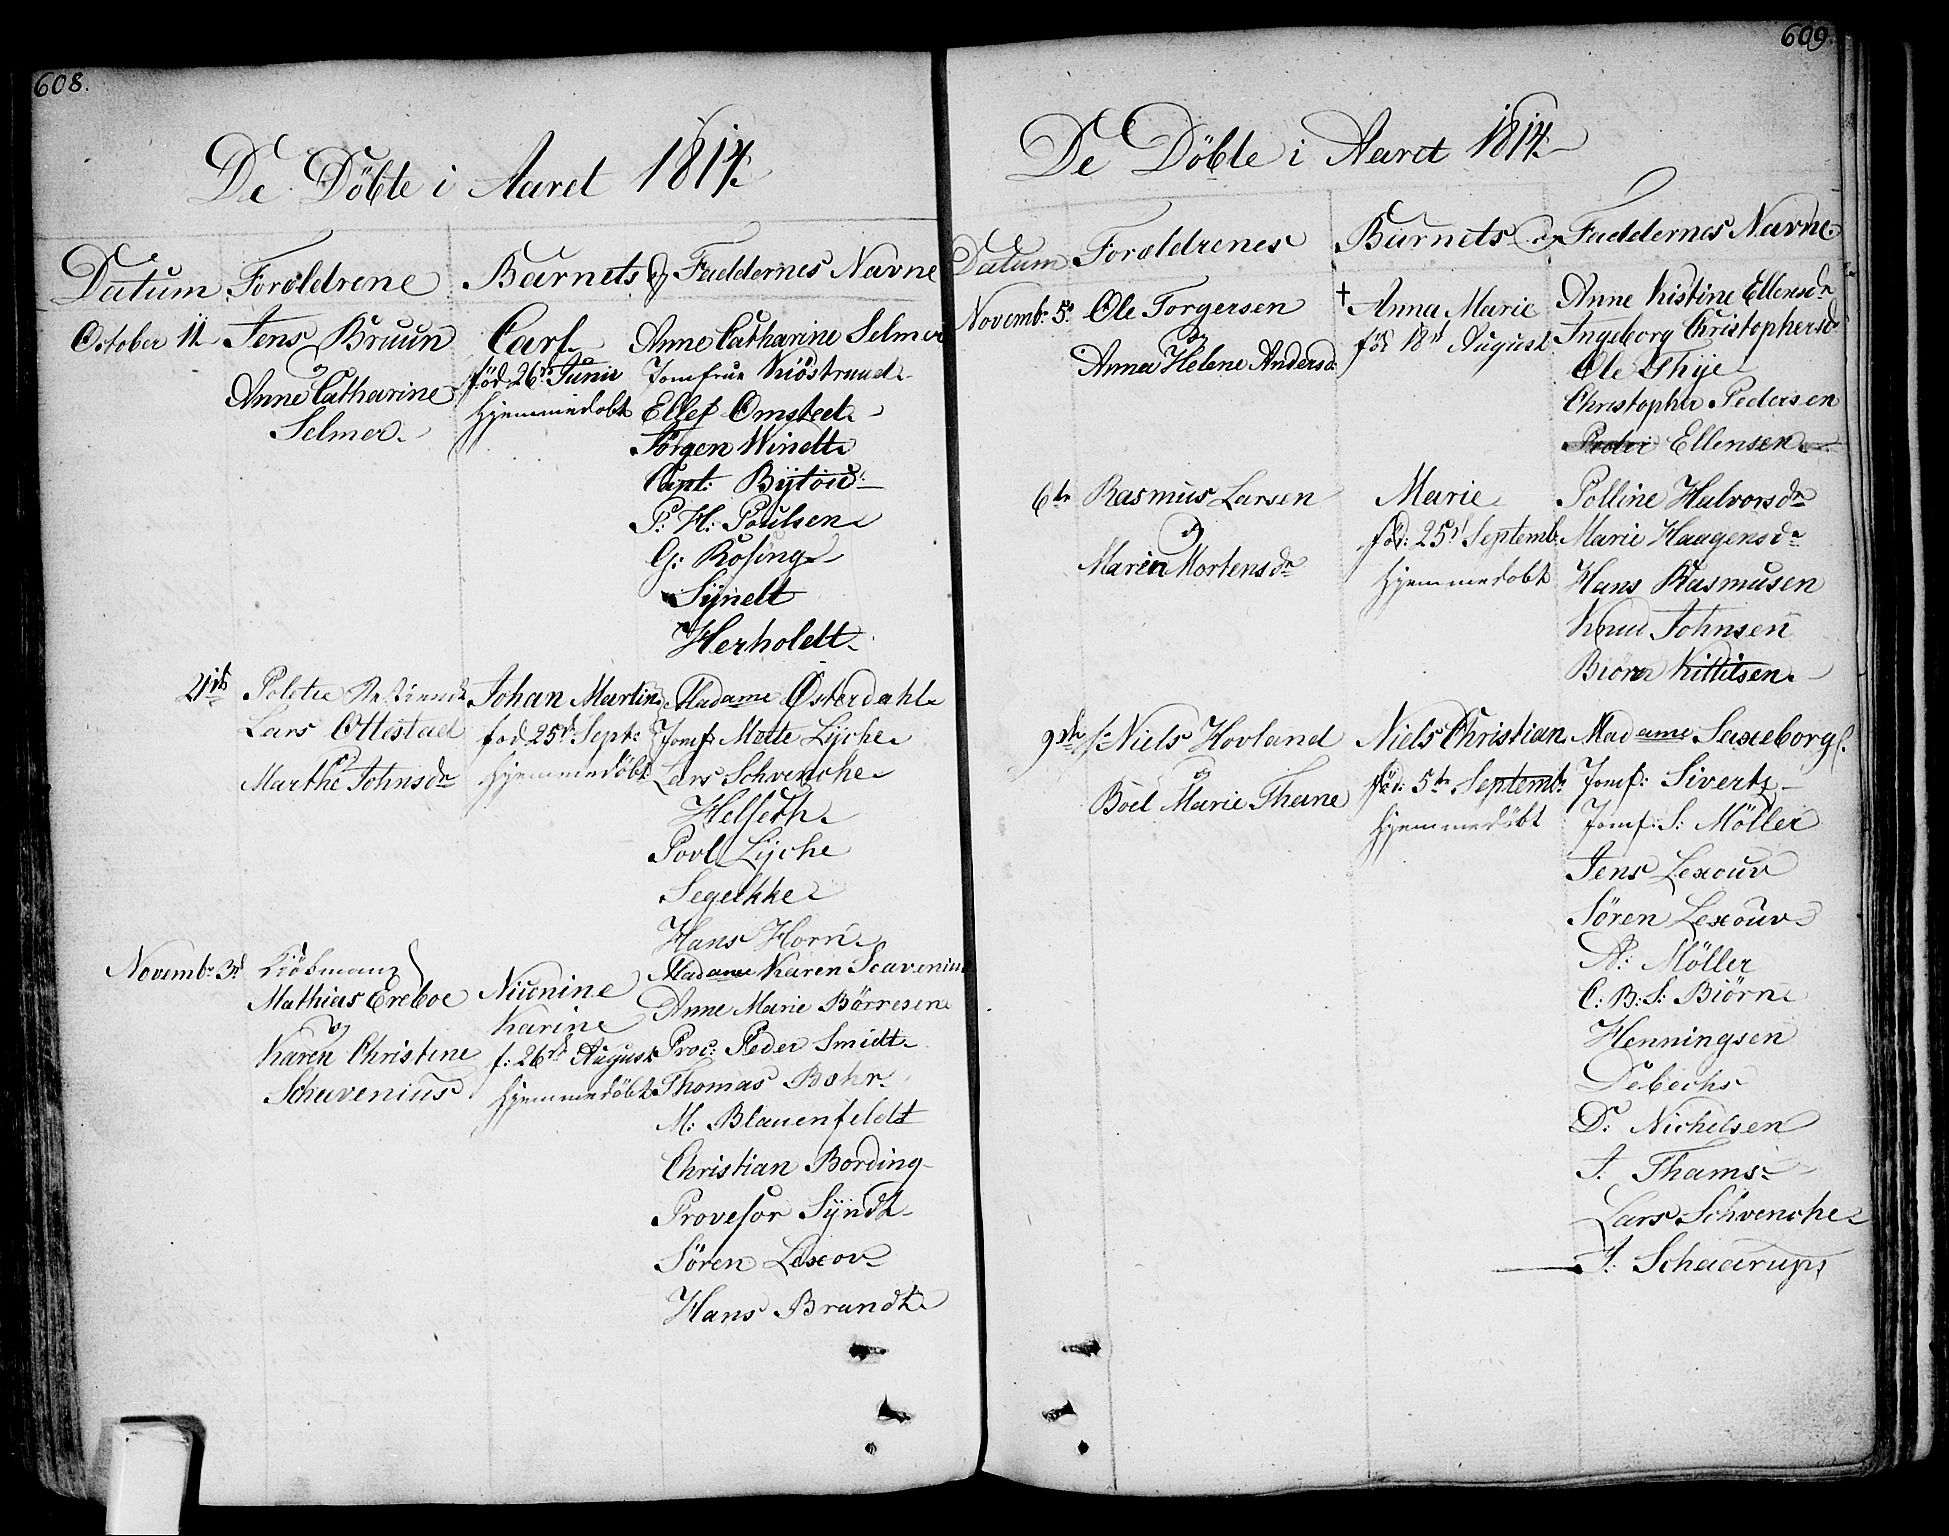 608.
De Döbte i Aaret 1814.
Datum Forældrene Barnets og Faddernes Navne
October 11
Jens Bruun
og
Anne Catharine
Selmer
Carl
föd 26 Junii
hjemmedöbt
Anne Catharine Selmer
Jomfrue Kiöstrud
Ellef Omsted
Jörgen Winelt
Capt: Bytou
P: H: Poulsen
G: Rosing
Synelt
Herholdt
21de
Politie
Lars Ottestad
og
Marthe Johnsdr
Johan Martin
fod 25de Sept:
hjemmedöbt
Madame Österdahl
Jomf: Mette Lyche
Lars Schvenche
Helseth
Povl Lyche
Segelkke
Hans Horn
Novembr 3d
Kiöbmand
Mathias Ereboe
og
Karen Christine
Schavenius
Nicnine
Karine
f: 26de August
hjemmedöbt
Madame Karen Scavenius
Anne Marie Börresen
Proc: Peder Smidt
Thomas Bohr
M: Blauenfeldt
Christian Bording
Provesor Syndt
Sören Lexov
Hans Brandt
609.
De Döbte i Aaret 1814
Datum Forældrenes Barnets og Faddernes Navne
Novemb: 5
Ole Torgersen
og
Anna Helene Andersd
† Anna Marie
föd 18d August
Anne Kistine Ellensdr
Ingeborg Christophersdr
Ole Thye
Christopher Pedersen
Peder Ellensen
6te
Rasmus Larsen
og
Maren Mortensdr
Marie
föd: 25d Septemb
hjemmedöbt
Polline Halvorsdr
Marie Haagensdr
Hans Rasmusen
Knud Johnsen
Biörn Kittilsen
9de
Niels Hovland
og
Boel Marie Thane
Niels Christian
föd: 5te Septemb:
hjemmedöbt
Madame Saxeborg
Jomf: Sivertz
Jomf: S: Möller
Jens Lexouv
Sören Lexouv
A: Möller
C: B: S: Biörn
Henningsen
Debechs
D: Nichelsen
J. Thams
Lars Schvenche
J: Schaarups